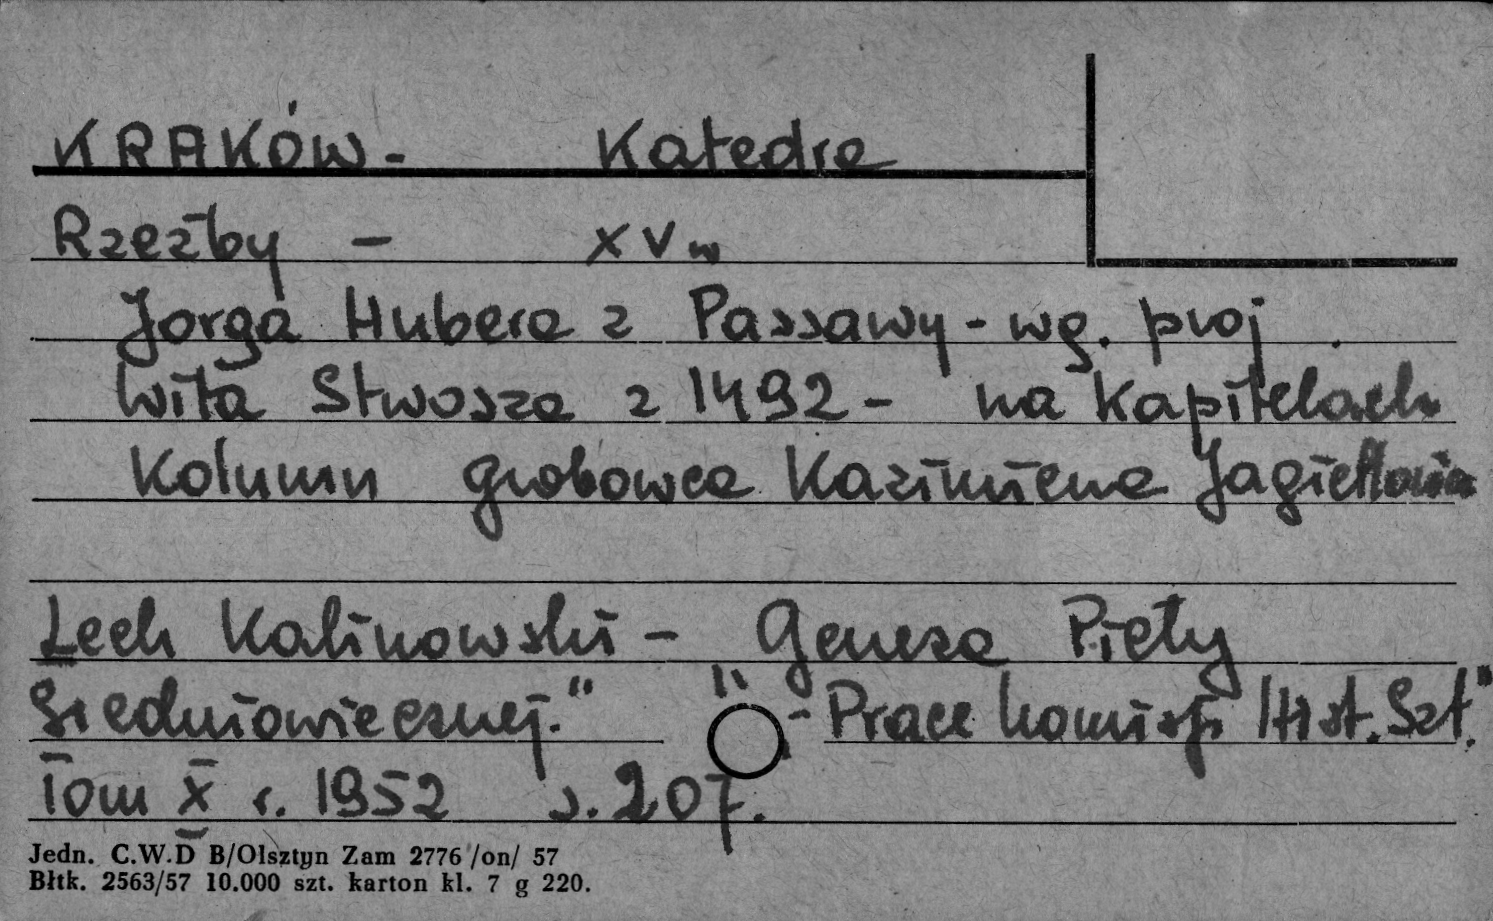 KRAKÓW - Katedra
Rzeźby - XV w
Jorga Hubera z Passawy - wg. proj.
Wita Stwosza z 1492 - na kapitelach
Kolumn grobowca Kazimierza Jagiellończ
Lech Kalinowski - Geneza Piety
Średniowiecznej." " - Prace Komisji Hist. Szt."
Tom X r. 1952 s. 207.
Jedn. C.W.D B/Olsztyn Zam 2776 /on/ 57
Błtk. 2563/57 10.000 szt. karton kl. 7 g 220.